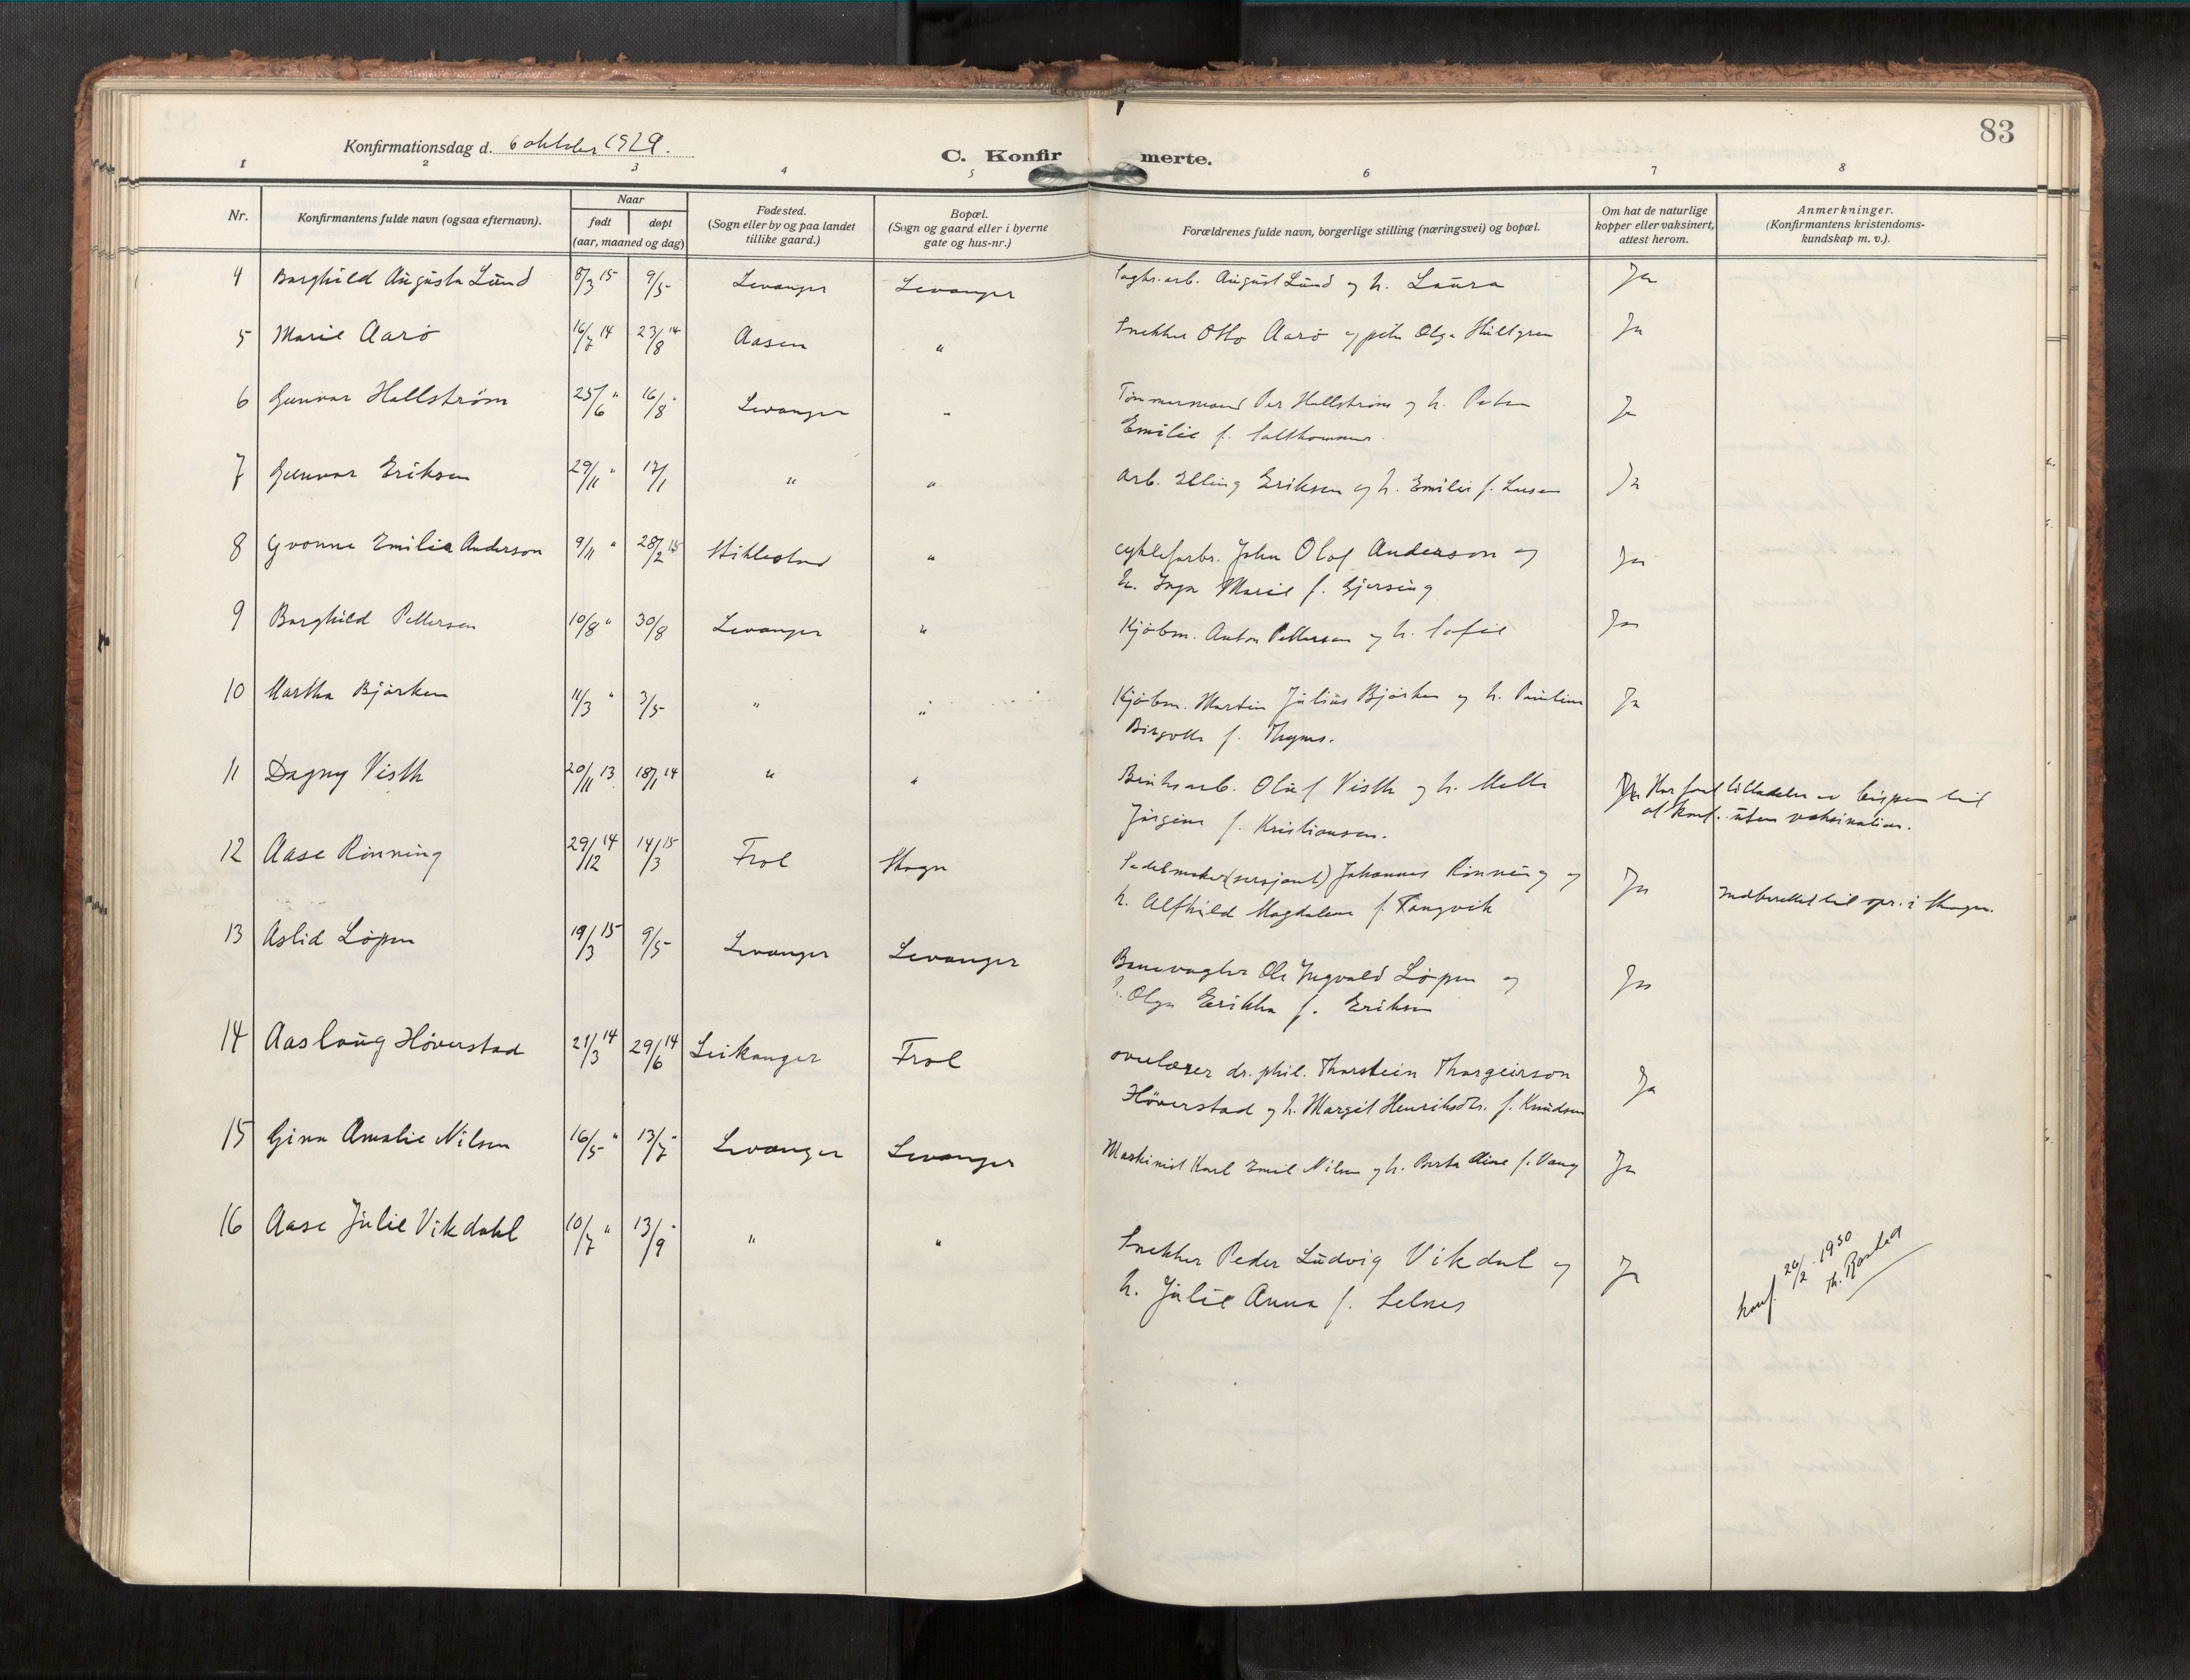 83
Konfirmationsdag d. 6 oktober 1929.
C. Konfirmerte.
1 2 3 4 5 6 7 8
Nr.
Konfirmantens fulde navn (ogsaa efternavn).
Naar
født døpt
(aar, maaned og dag)
Fødested.
(Sogn eller by og paa landet
tillike gaard.)
Bopæl.
(Sogn og gaard eller i byerne
gate og hus-nr.)
Forældrenes fulde navn, borgerlige stilling (næringsvei) og bopæl.
Om hat de naturlige
kopper eller vaksinert,
attest herom.
Anmerkninger.
(Konfirmantens kristendoms-
kundskap m. v.).
4 Borghild Augusta Lund 8/3 15 9/5 Levanger Levanger arb. August Lund og h. Laura Ja
5 Marie Aarø 16/7 14 23/8 14 Aasen " Snekker Otto Aarø og Olga Hultgren Ja
6 Gunvor Hallstrøm 25/6 " 16/8 " Levanger " Tømmermand Per Hallstrøm og h. Petra Ja
Emilie f.
7 Gunvor Eriksen 29/11 " 17/1 " " arb. Elling Eriksen og h. Emilie f. Larsen Ja
8 Yvonne Emilie Anderson 9/11 " 28/2 15 Stiklestad " cyklefabr. John Olof Anderson og Ja
h. Inga Marie f. Gjersing
9 Borghild Pettersen 10/8 " 30/8 Levanger " Kjøbm. Anton Pettersen og h. Sofie Ja
10 Martha Bjørken 11/3 " 3/5 " " Kjøbm. Martin Julius Bjørken og h. Pauline Ja
f.
11 Dagny Visth 20/11 13 18/1 14 " " Bruksarb. Oluf Visth og h. Mette Ja Har faat tilladelse av bispen til
Jørgine f. Kristiansen. at konf. uten vaksination.
12 Aase Rønning 29/12 14 14/3 15 Frol Skogn Sadelmaker (sersjant) Johannes Rønning og Ja Indberettet til spr. i Skogn.
h. Alfhild Magdalene f. Tangvik
13 Aslid Løpen 19/3 15 9/5 Levanger Levanger Banevogter Ole Ingvald Løpen og Ja
h. Olga Erikka f. Eriksen
14 Aaslaug Høverstad 21/3 14 29/6 14 Leikanger Frol overlærer dr. phil. Thorstein Thorgeirson Ja
Høverstad og h. Margit Henriksdtr. f. Knudsen
15 Gina Amalie Nilsen 16/5 " 13/7 " Levanger Levanger Maskinist Karl Emil Nilsen og h. Berta Aline f. Vang Ja
16 Aase Julie Vikdahl 10/7 " 13/9 " " " Snekker Peder Ludvig Vikdal og Ja
h. Julie Anna f. Selnes
konf. 26/2 1930